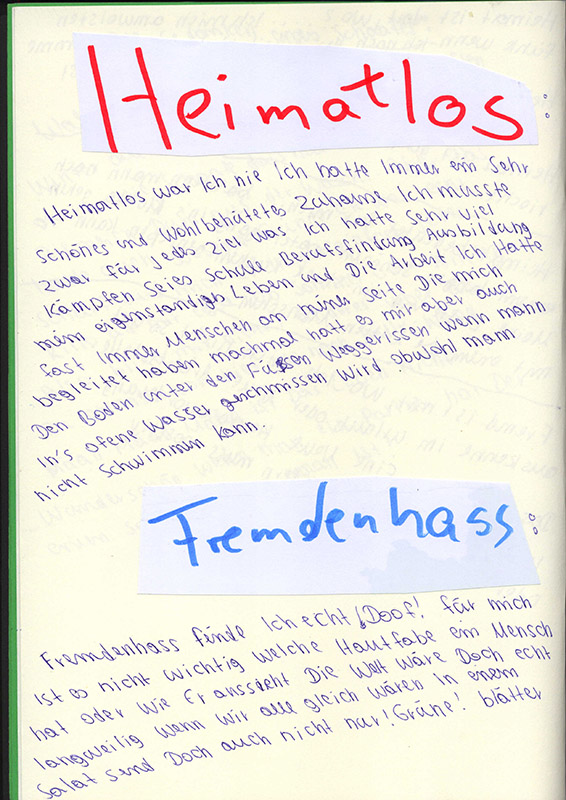 Heimatlos:
Heimatlos war Ich nie Ich hatte Immer ein Sehr
Schönes und Wohlbehütetes Zuhause Ich musste
zwar für Jedes Ziel was Ich hatte Sehr viel
Kämpfen Seies Schule Berufsfindung Ausbildung
mein eigenständiges Leben und Die Arbeit Ich Hatte
fast Immer Menschen an meiner Seite Die mich
begleitet haben machmal hatt es mir aber auch
Den Boden unter den Füssen Weggerissen wenn mann
In's ofene Wasser geschmissen wird obwohl mann
nicht Schwimmen Kann.
Fremdenhass:
Fremdenhass finde Ich echt Doof! für mich
Ist es nicht wichtig welche Hautfabe ein Mensch
hat oder Wie Er aussieht Die Welt wäre Doch echt
langweilig Wenn Wir alle gleich Wären In einem
Salat sind Doch auch nicht nur! Grüne! blätter